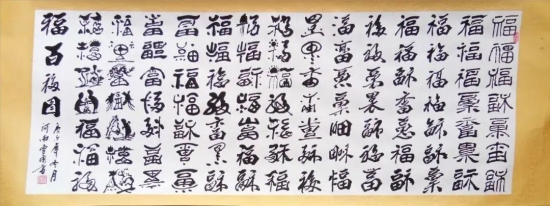 福福福福福福福
福福福福福福福
福福福福福福福
福福福福福福福
福福福福福福福
福福福福福福福
福福福福福福福
福福福福福福福
福福福福福福福
福福福福福福福
福福福福福福福
福福福福福福福
福福福福福福福
福福福福福福福
福百福图